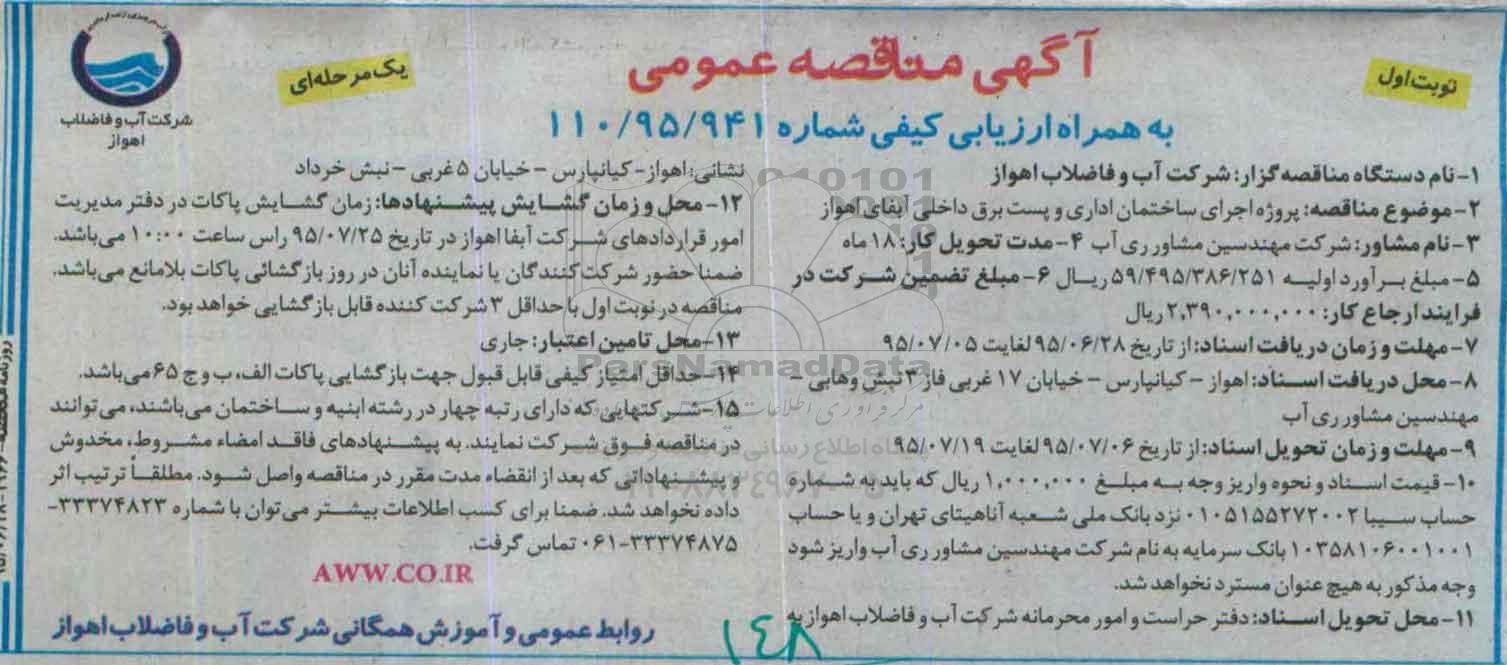 شرکت آب و فاضلاب
اهواز
یک مرحله‌ای
آگهی مناقصه عمومی
نوبت اول
به همراه ارزیابی کیفی شماره ۱۱۰/۹۵/۹۴۱
۱- نام دستگاه مناقصه گزار: شرکت آب و فاضلاب اهواز
۲- موضوع مناقصه: پروژه اجرای ساختمان اداری و پست برق داخلی آبفای اهواز
۳- نام مشاور: شرکت مهندسین مشاور ری آب ۴- مدت تحویل کار: ۱۸ ماه
۵- مبلغ برآورد اولیه ۵۹/۴۹۵/۳۸۶/۲۵۱ ریال ۶- مبلغ تضمین شرکت در
فرایند ارجاع کار: ۲,۳۹۰,۰۰۰,۰۰۰ ریال
۷- مهلت و زمان دریافت اسناد: از تاریخ ۹۵/۰۶/۲۸ لغایت ۹۵/۰۷/۰۵
۸- محل دریافت اسناد: اهواز - کیانپارس - خیابان ۱۷ غربی فاز ۳ نبش وهابی -
مهندسین مشاور ری آب
۹- مهلت و زمان تحویل اسناد: از تاریخ ۹۵/۰۷/۰۶ لغایت ۹۵/۰۷/۱۹
۱۰- قیمت اسناد و نحوه واریز وجه به مبلغ ۱,۰۰۰,۰۰۰ ریال که باید به شماره
حساب سیبا ۰۱۰۵۱۵۵۲۷۲۰۰۲ نزد بانک ملی شعبه آناهیتای تهران و یا حساب
۱۰۳۵۸۱۰۶۰۰۱۰۰۱ بانک سرمایه به نام شرکت مهندسین مشاور ری آب واریز شود
وجه مذکور به هیچ عنوان مسترد نخواهد شد.
۱۱- محل تحویل اسناد: دفتر حراست و امور محرمانه شرکت آب و فاضلاب اهواز به
نشانی: اهواز - کیانپارس - خیابان ۵ غربی - نبش خرداد
۱۲- محل و زمان گشایش پیشنهادها: زمان گشایش پاکات در دفتر مدیریت
امور قراردادهای شرکت آبفا اهواز در تاریخ ۹۵/۰۷/۲۵ راس ساعت ۱۰:۰۰ می‌باشد.
ضمنا حضور شرکت کنندگان یا نماینده آنان در روز بازگشائی پاکات بلامانع می‌باشد.
مناقصه در نوبت اول با حداقل ۳ شرکت کننده قابل بازگشایی خواهد بود.
۱۳- محل تامین اعتبار: جاری
۱۴- حداقل امتیاز کیفی قابل قبول جهت بازگشایی پاکات الف، ب و ج ۶۵ می‌باشد.
۱۵- شرکتهایی که دارای رتبه چهار در رشته ابنیه و ساختمان می‌باشند، می‌توانند
در مناقصه فوق شرکت نمایند. به پیشنهادهای فاقد امضاء مشروط، مخدوش
و پیشنهاداتی که بعد از انقضاء مدت مقرر در مناقصه واصل شود. مطلقاً ترتیب اثر
داده نخواهد شد. ضمنا برای کسب اطلاعات بیشتر می‌توان با شماره ۳۳۳۷۴۸۲۳-
۰۶۱-۳۳۳۷۴۸۷۵ تماس گرفت.
AWW.CO.IR
روابط عمومی و آموزش همگانی شرکت آب و فاضلاب اهواز
۱۴۸
ParsNamadData